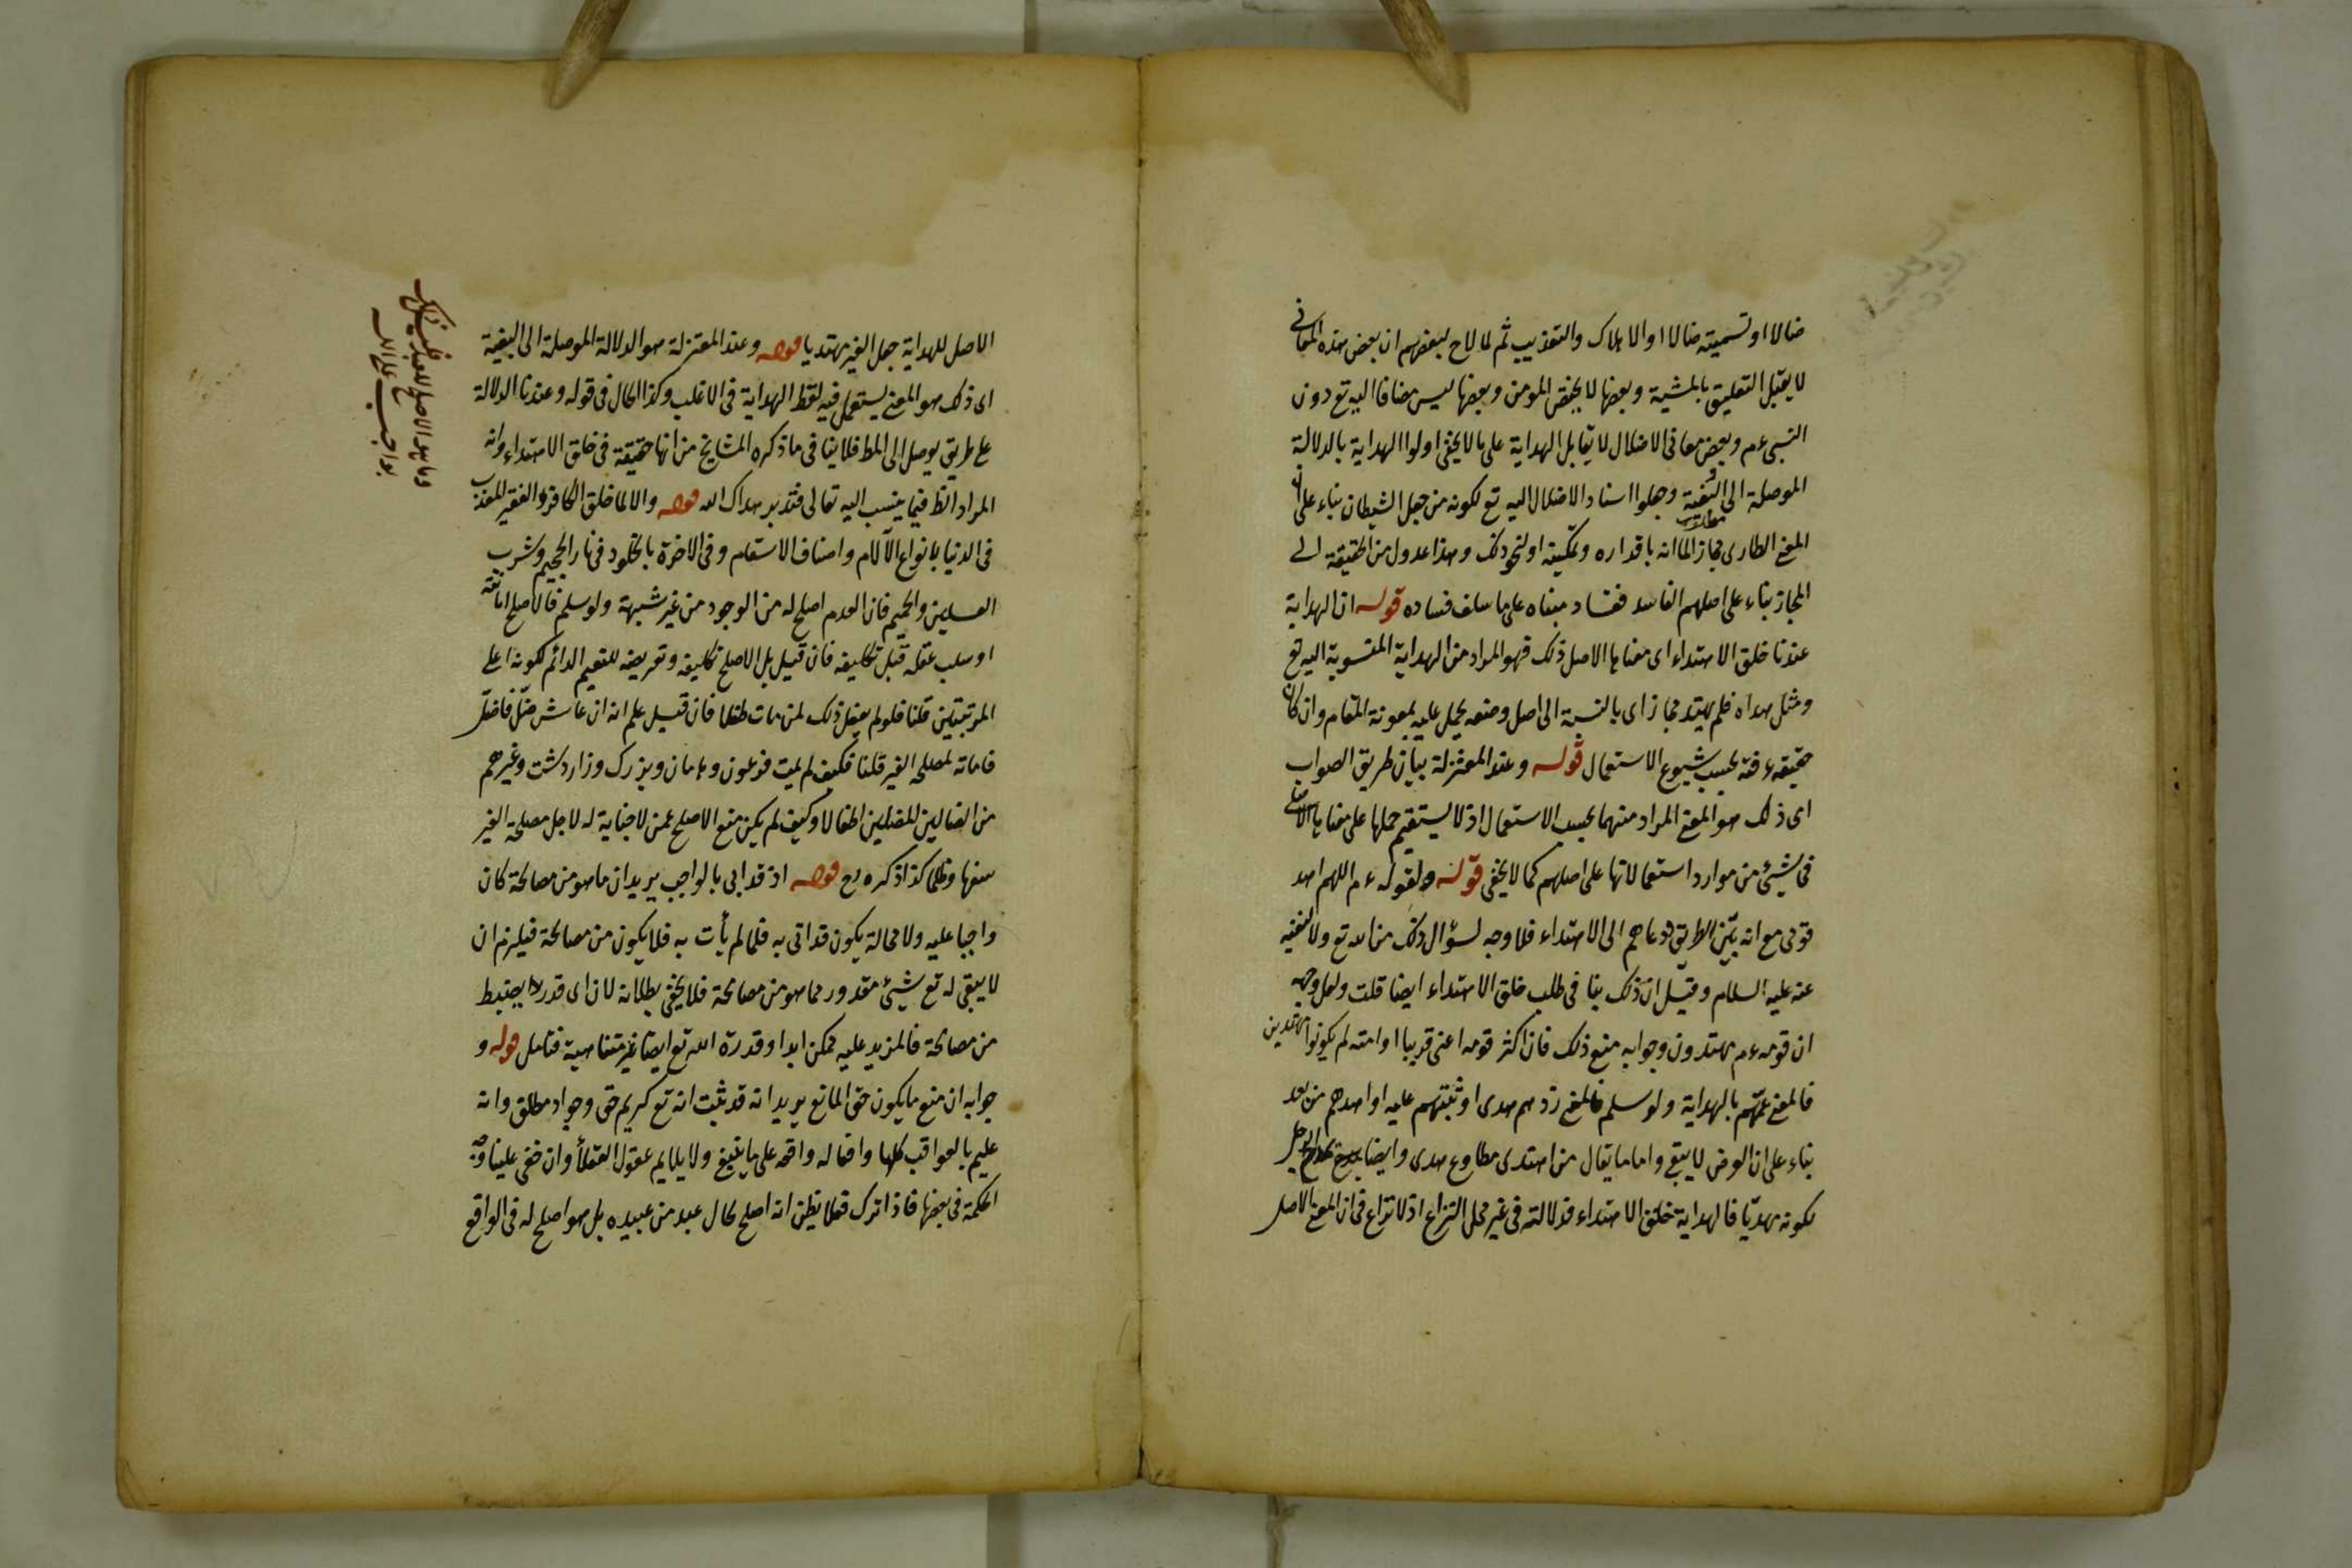 ضالا او تسميته ضالا او الاهلاك والتعذيب ثم لما لاح لبعضهم ان بعض هذه المعانى
لا يقبل التعليق بالمشية وبعضها لا يختص المومن وبعضها ليس مضافا اليه تع دون
النبى عم وبعض معانى الاضلال لا يقابل الهداية على ما لا يخفى اولوا الهداية بالدلالة
الموصلة الى البغية وجعلوا اسناد الاضلال اليه تع لكونه من جعل الشيطان بناء على ان
المعنى الطارى مجاز لما انه باقداره وتمكينه او لنحو ذلك وهذا عدول من الحقيقة الى
المجاز بناء على اصلهم الفاسد ففساد مبناه على ما سلف فساده قوله ان الهداية
عندنا خلق الاهتداء اى معناها الاصل ذلك فهو المراد من الهداية المنسوبة اليه تع
ومثل هداه فلم يهتد مجاز اى بالنسبة الى اصل وضعه يحمل عليه بمعونة المقام وان كان
حقيقة عرفية بحسب شيوع الاستعمال قوله وعند المعتزلة بيان طريق الصواب
اى ذلك هو المعنى المراد منهما بحسب الاستعمال اذ لا يستقيم حملها على معناها الاصلى
فى شيئ من موارد استعمالاتها على اصلهم كما لا يخفى قوله ولقوله عم اللهم اهد
قومى مع انه بيّن الطريق ودعاهم الى الاهتداء فلا وجه لسؤال ذلك من الله تع ولا لنفيه
عنه عليه السلام وقيل ان ذلك ينافى طلب خلق الاهتداء ايضا قلت ولعل وجهه
ان قومه عم مهتدون وجوابه منع ذلك فان اكثر قومه اعنى قريبا او امته لم يكونوا مهتدين
فالمعنى عمّهم بالهداية ولو سلم فالمعنى زدهم هدى او ثبتهم عليه او اهدهم من بعد
بناء على ان العرض لا يبقى واما ما يقال من اهتدى مطاوع هدى وايضا يمدح الرجل
بكونه مهديّا فالهداية خلق الاهتداء فدلالته فى غير محل النزاع اذ لا نزاع فى ان المعنى الاصل
الاصل للهداية جعل الغير مهتديا قوله وعند المعتزلة هو الدلالة الموصلة الى البغية
اى ذلك هو المعنى يستعمل فيه لفظ الهداية فى الاغلب وكذا الحال فى قوله وعندنا الدلالة
على طريق يوصل الى المط فلا ينافى ما ذكره المشايخ من انها حقيقة فى خلق الاهتداء وانه
المراد الظ فيما ينسب اليه تعالى فتدبر هداك الله قوله والا لما خلق الكافر الفقير المعذب
فى الدنيا بانواع الآلام واصناف الاسقام وفى الاخرة بالخلود فى نار الجحيم وشرب
الغسلين والحميم فان العدم اصلح له من الوجود من غير شبهة ولو سلم فالاصلح اماتته
او سلب عقله قبل تكليفه فان قيل بل الاصلح تكليفه وتعريضه للنعيم الدائم لكونه اعلى
المرتبتين قلنا فلو لم يفعل ذلك لمن مات طفلا فان قيل علم انه ان عاش ضلّ فاضلّ
فاماته لمصلحة الغير قلنا فكيف لم يمت فرعون وهامان ويزرك وزاردشت وغيرهم
من الضالين المضلين اطفالا وكيف لم يكن منع الاصلح عمن لا جناية له لاجل مصلحة الغير
سفها وظلما كذا ذكره رح قوله اذ قد اتى بالواجب يريد ان ما هو من مصالحه كان
واجبا عليه ولا محالة يكون قد اتى به فلما لم يأت به فلا يكون من مصالحه فيلزم ان
لا يبقى له تع شيئ مقدور مما هو من مصالحه فلا يخفى بطلانه لان اى قدر يضبط
من مصالحه فالمزيد عليه ممكن ابدا وقدرة الله تع ايضا غير متناهية فتامل قوله و
جوابه ان منع ما يكون حق المانع يريد انه قد ثبت انه تع كريم حق وجواد مطلق وانه
عليم بالعواقب كلها وافعاله واقعة على ما ينبغى ولا يلايم عقول العقلأ وان خفى علينا وجه
الحكمة فى بعضها فاذا ترك فعلا يظن انه اصلح بحال عبد من عبيده بل هو اصلح له فى الواقع
وما هو الاصلح للعبد فليس ذلك
بواجب على الله